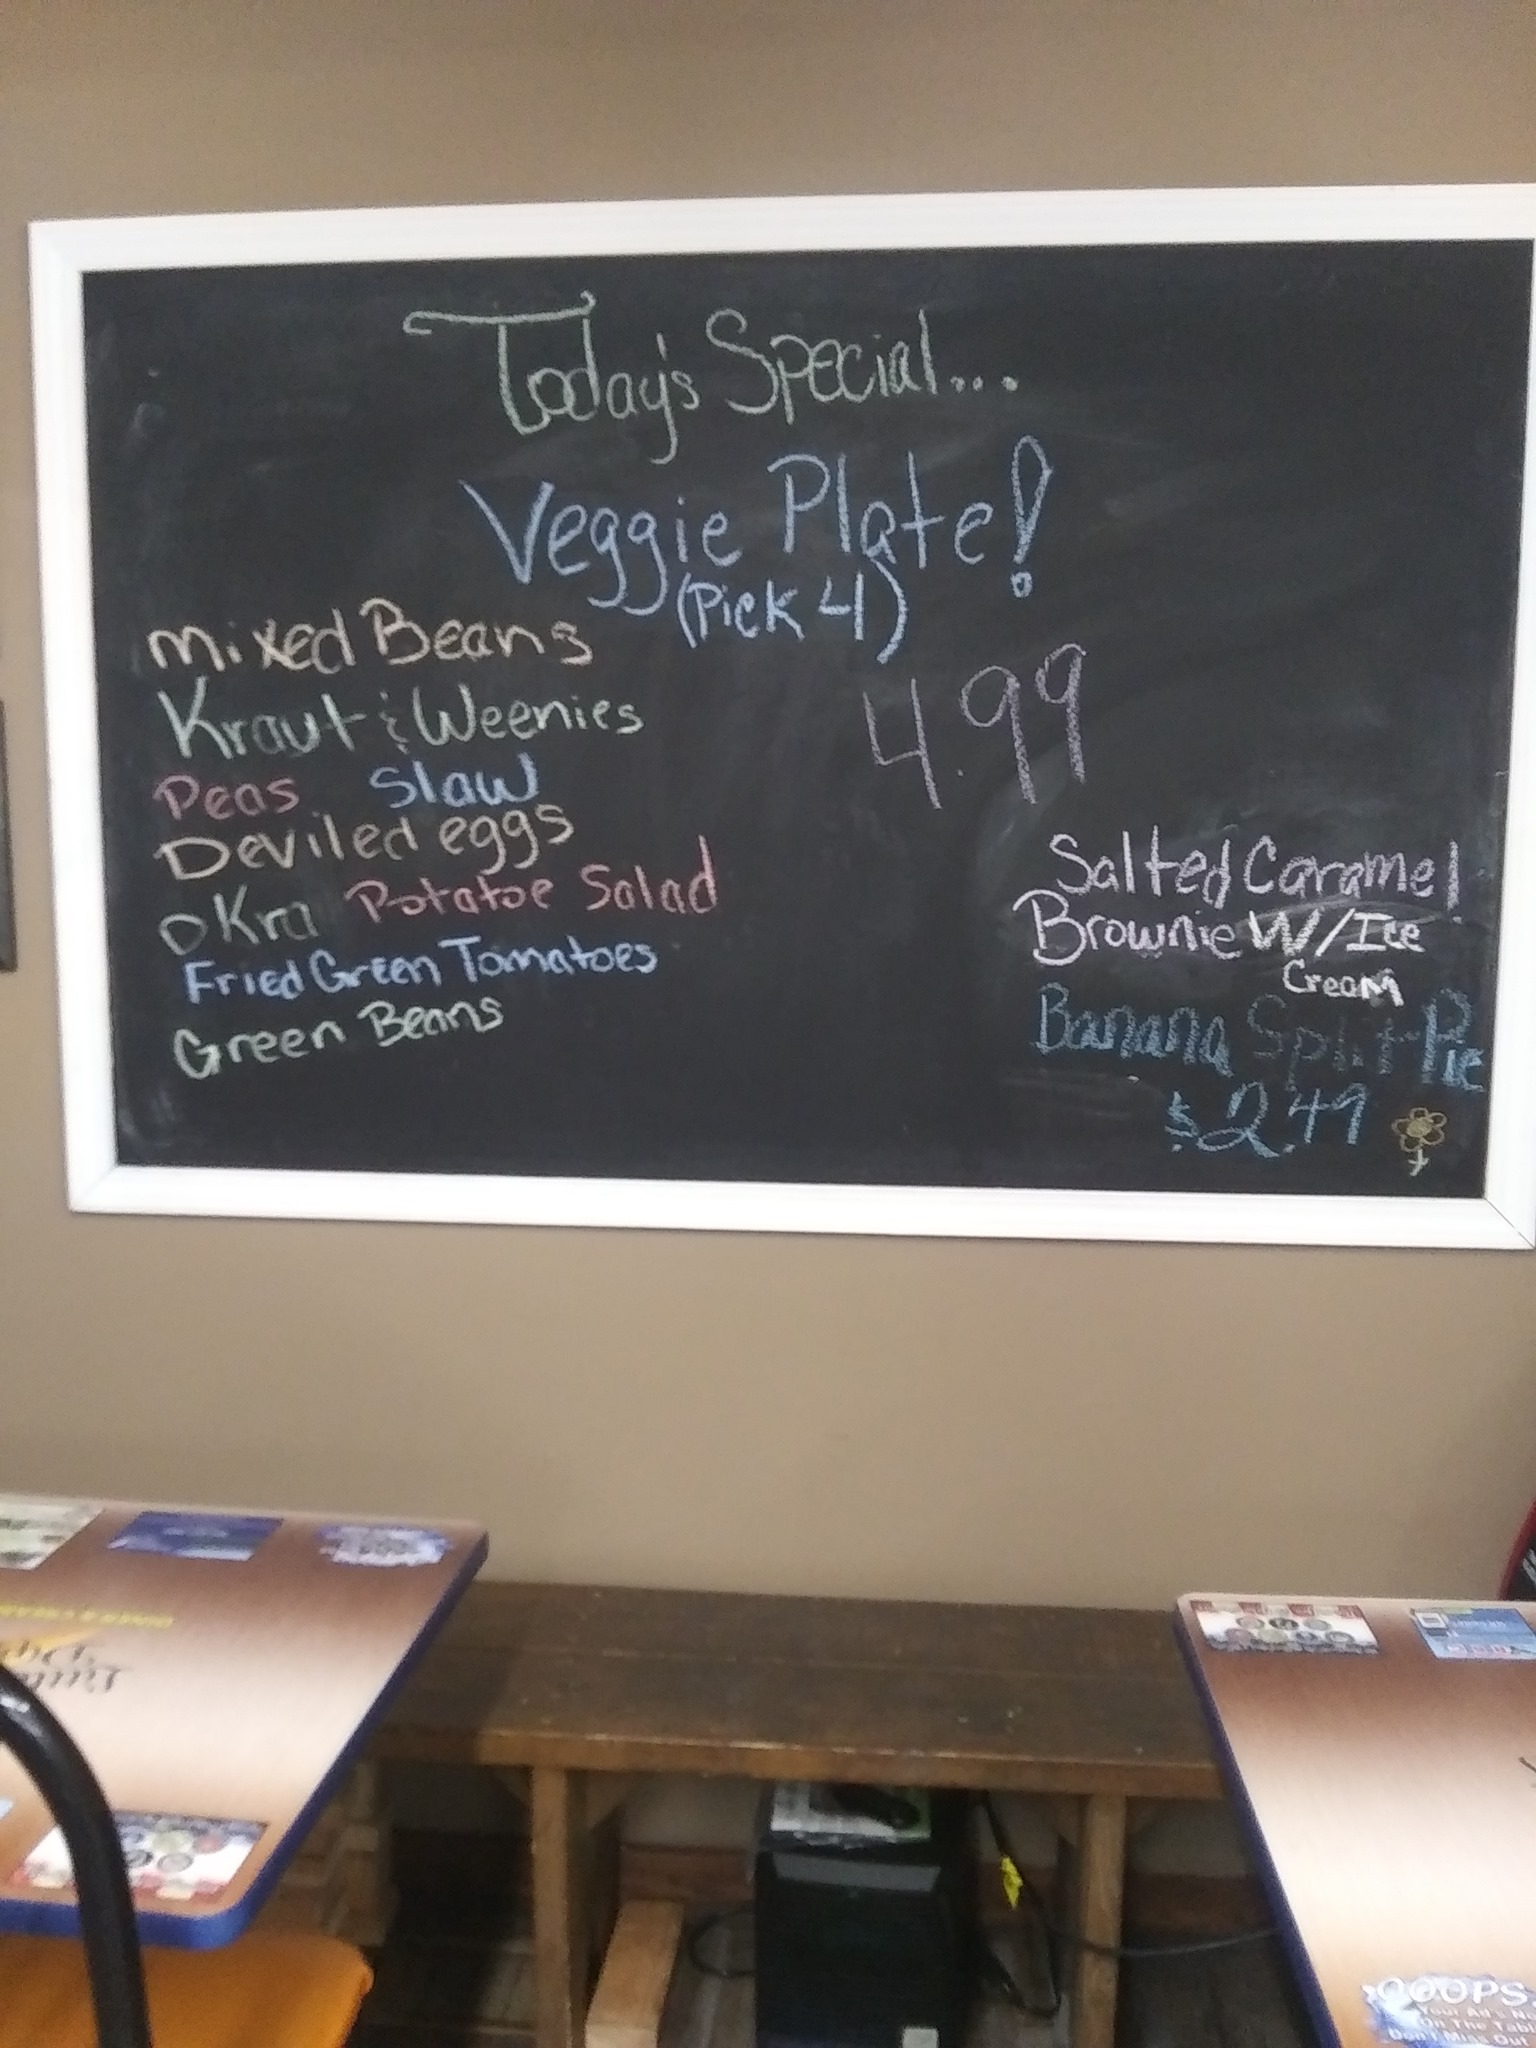 Today's Special...
Veggie Plate!
(Pick 4)
4.99
Mixed Beans
Kraut & Weenies
Peas Slaw
Deviled eggs
OKra Potatoe Salad
Fried Green Tomatoes
Green Beans
Salted Caramel
Brownie W/Ice
Cream
Banana Split Pie
$2.49
OOOPS.
Your Ad's No
On The Tabl
Don't Miss Out